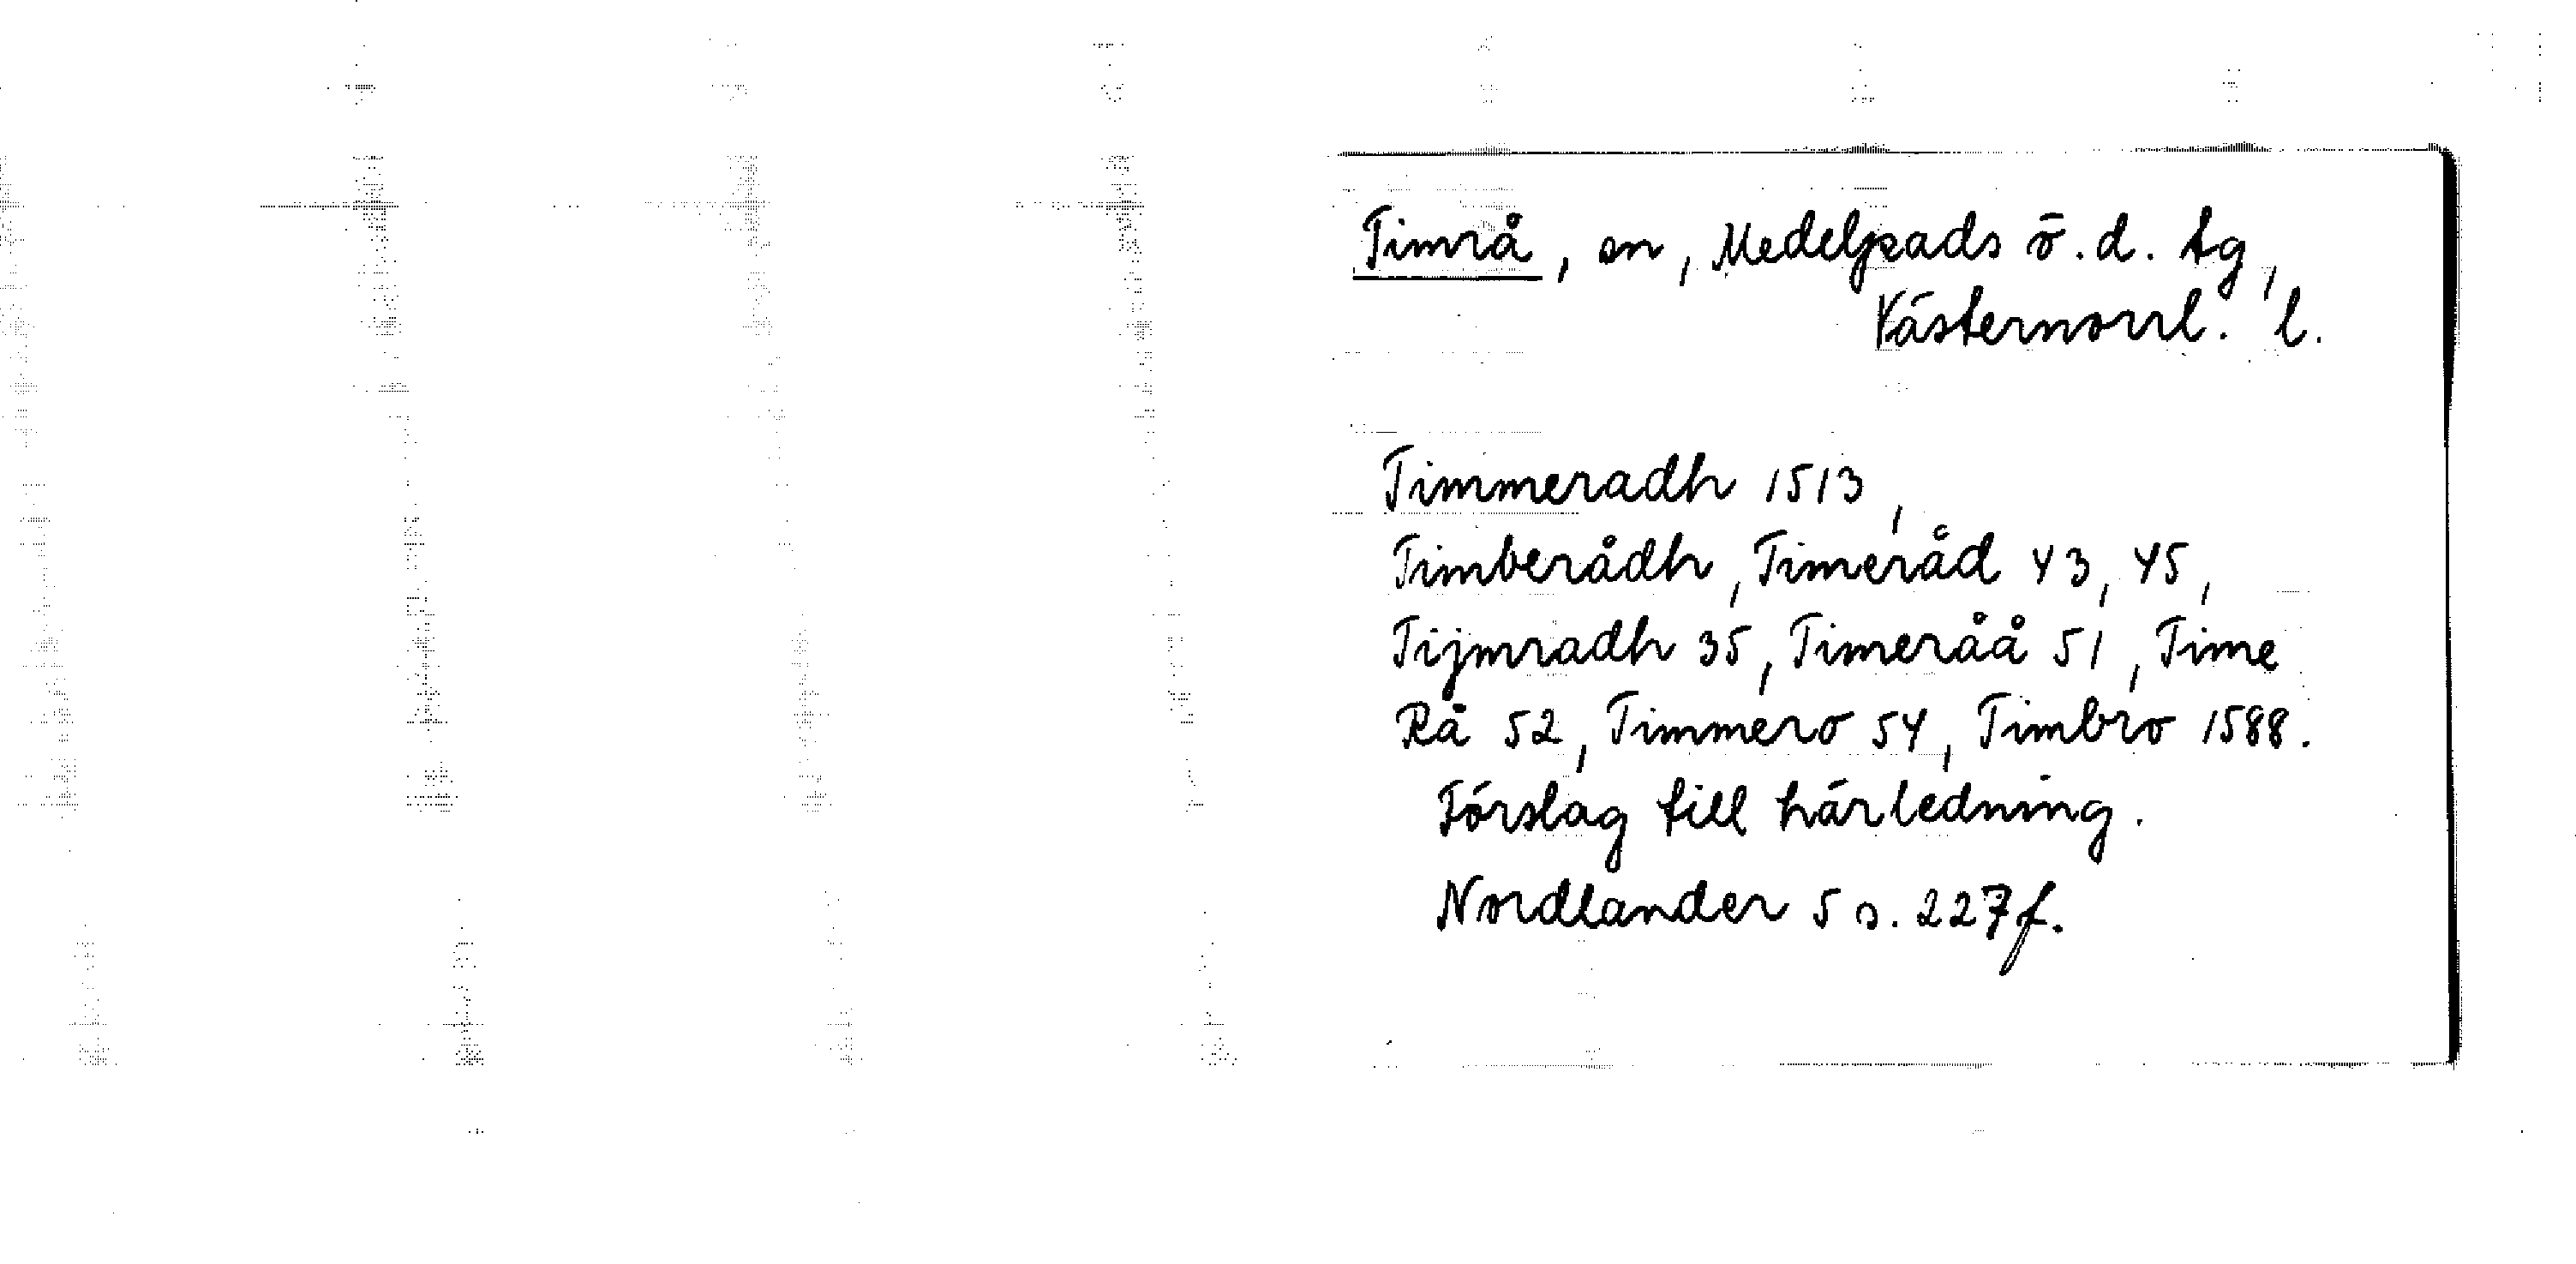 Timrå, sn, Medelpads ö. d. tg,
Västernorrl. l.
Timmeradh 1513,
Timberådh, Timeråd 43, 45,
Tijmradh 35, Timeråå 51, Time
Rå 52, Timmero 54, Timbro 1588.
Förslag till härledning.
Nordlander 5 s. 227f.